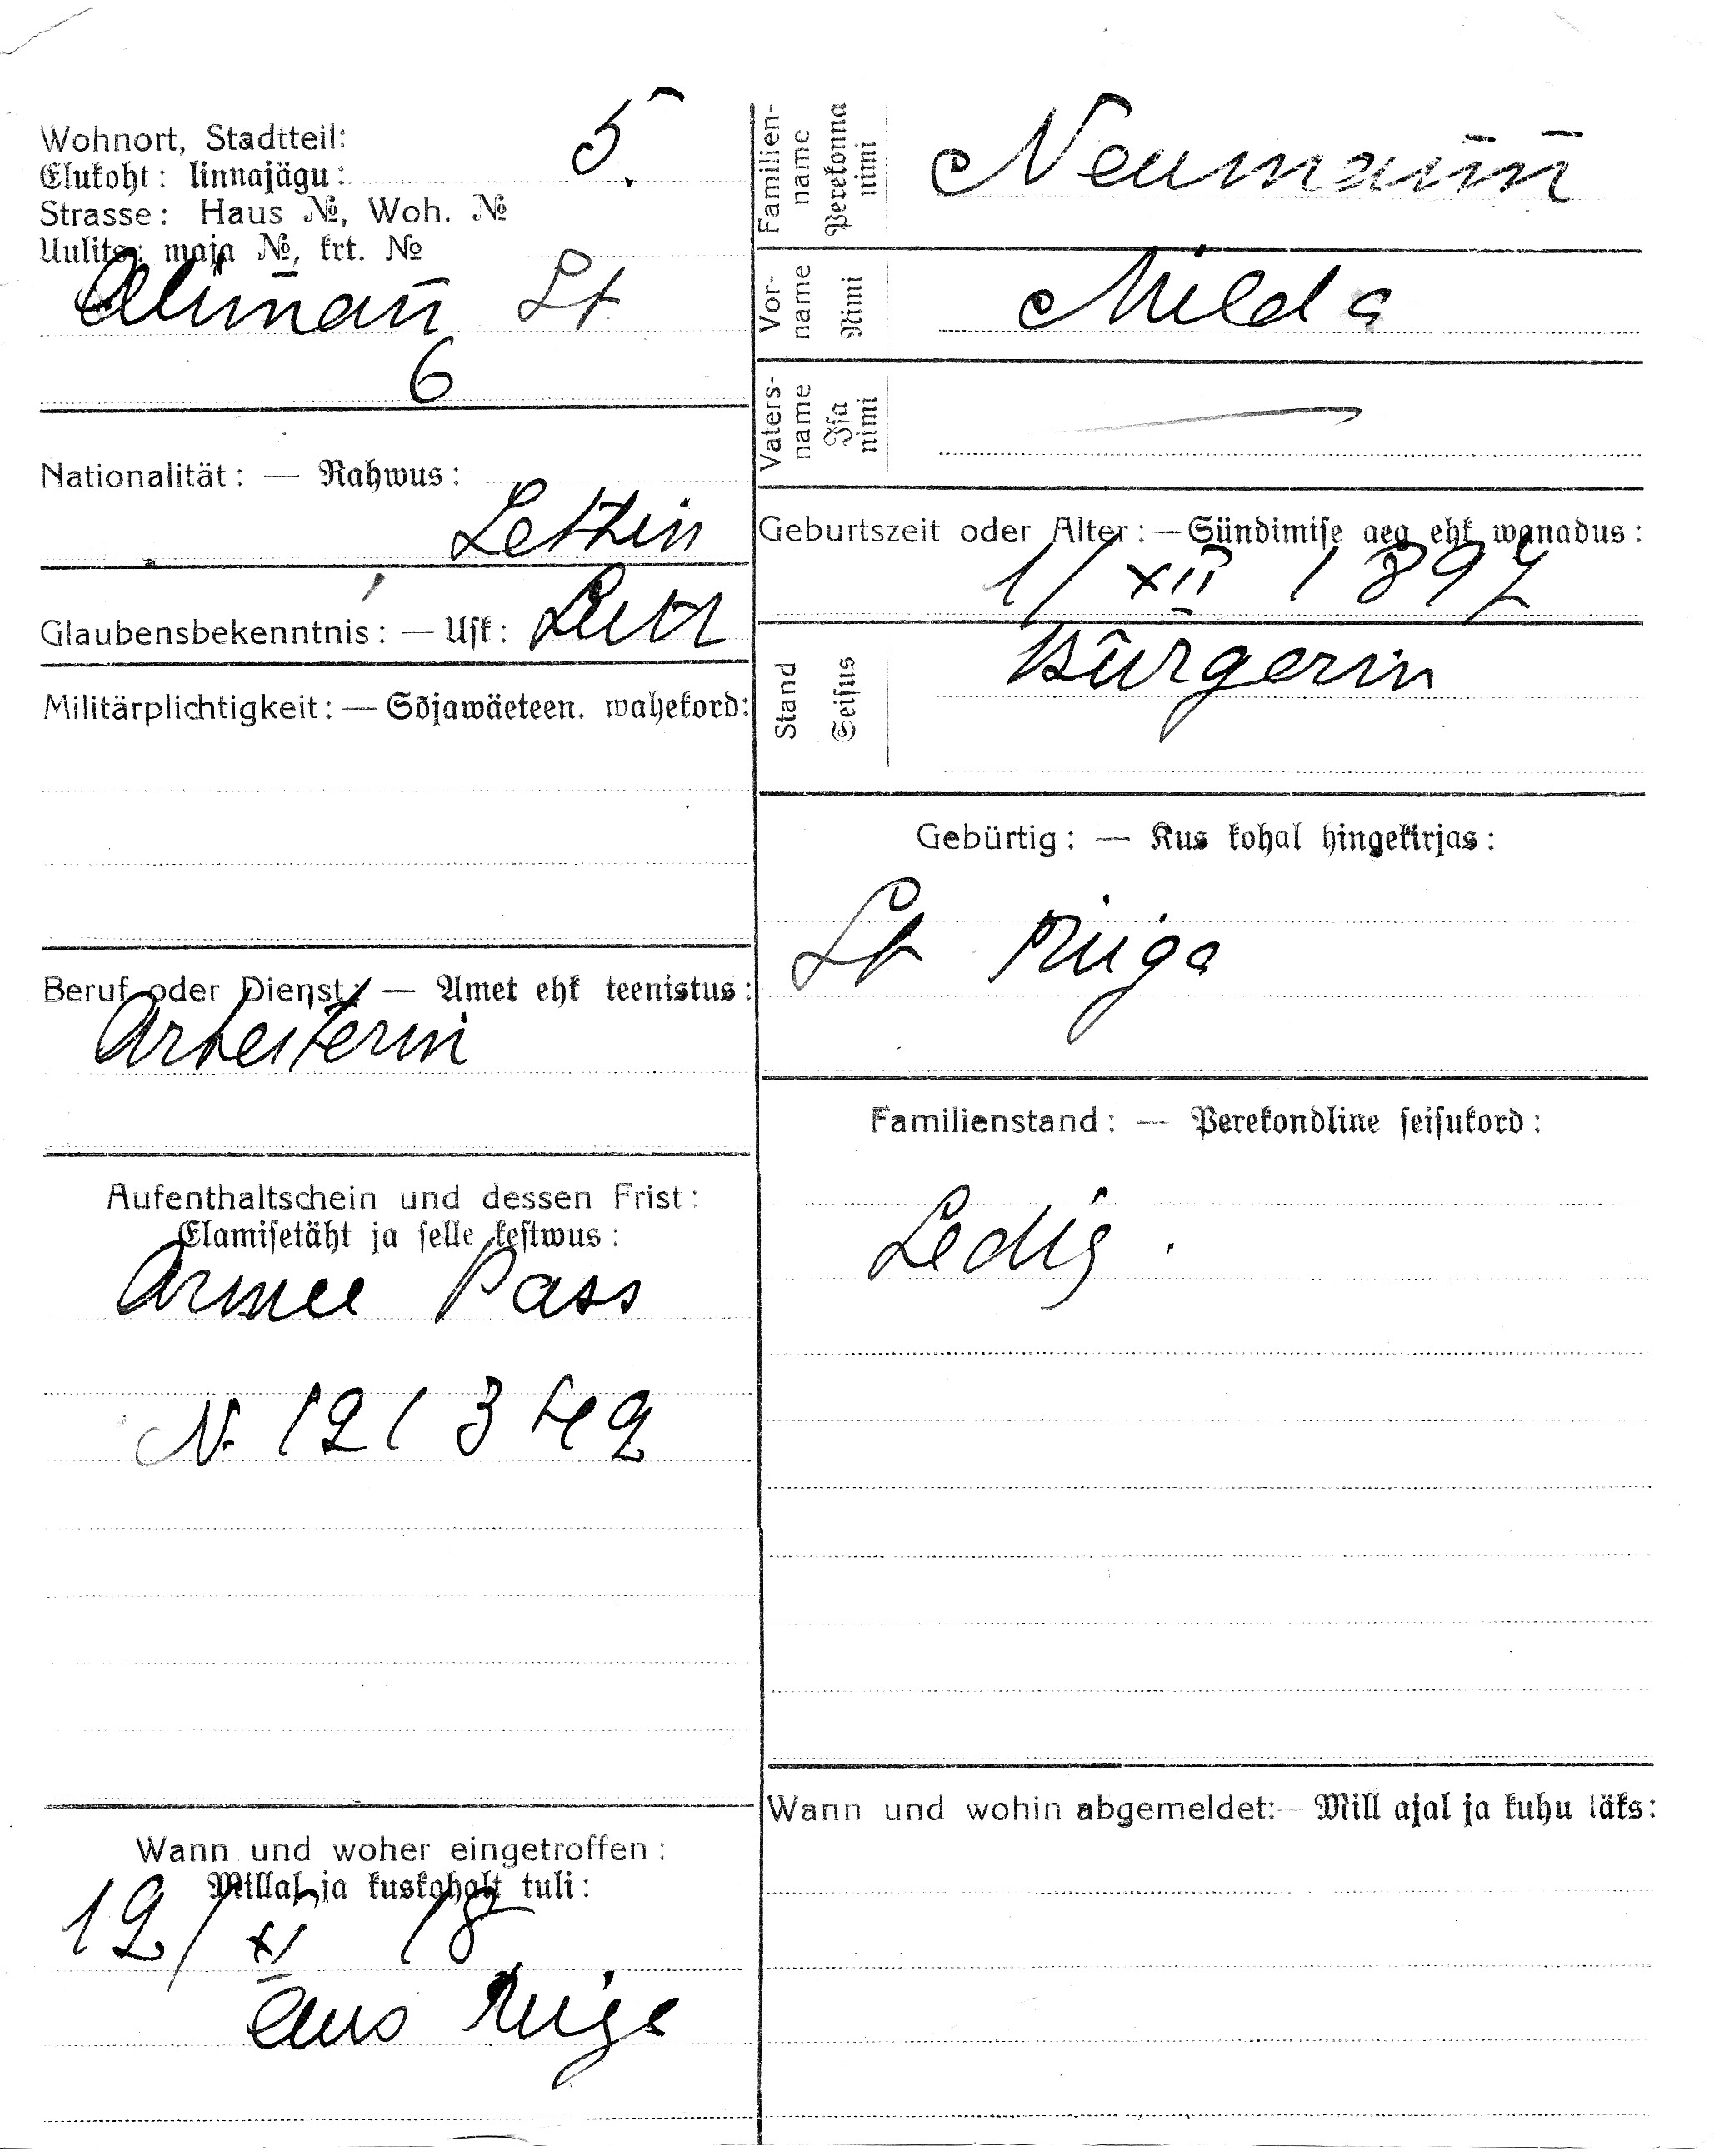 Wohnort, Stadtteil:
Elukoht: linnajägu: 5.
Strasse: Haus №, Woh. №
Uulits: maja №, krt. №
St
6
Nationalität: — Rahwus:
Lettin
Glaubensbekenntnis: — Usk: Luth
Militärplichtigkeit: — Sõjawäeteen. wahekord:
Beruf oder Dienst: — Amet ehk teenistus:
Arbeiterin
Aufenthaltschein und dessen Frist:
Elamisetäht ja selle kestwus:
Armee Pass
N. 121342
Wann und woher eingetroffen:
Millal ja kuskohalt tuli:
12/XI 18
aus Riga
Familien-
name
Perekonna
nimi
Neumann
Vor-
name
Nimi
Milda
Vaters-
name
Isa
nimi
Geburtszeit oder Alter: — Sündimise aeg ehk wanadus:
1/XII 1897
Stand
Seisus
Bürgerin
Gebürtig: — Kus kohal hingekirjas:
St Riga
Familienstand: — Perekondline seisukord:
Ledig.
Wann und wohin abgemeldet: — Mill ajal ja kuhu läks: